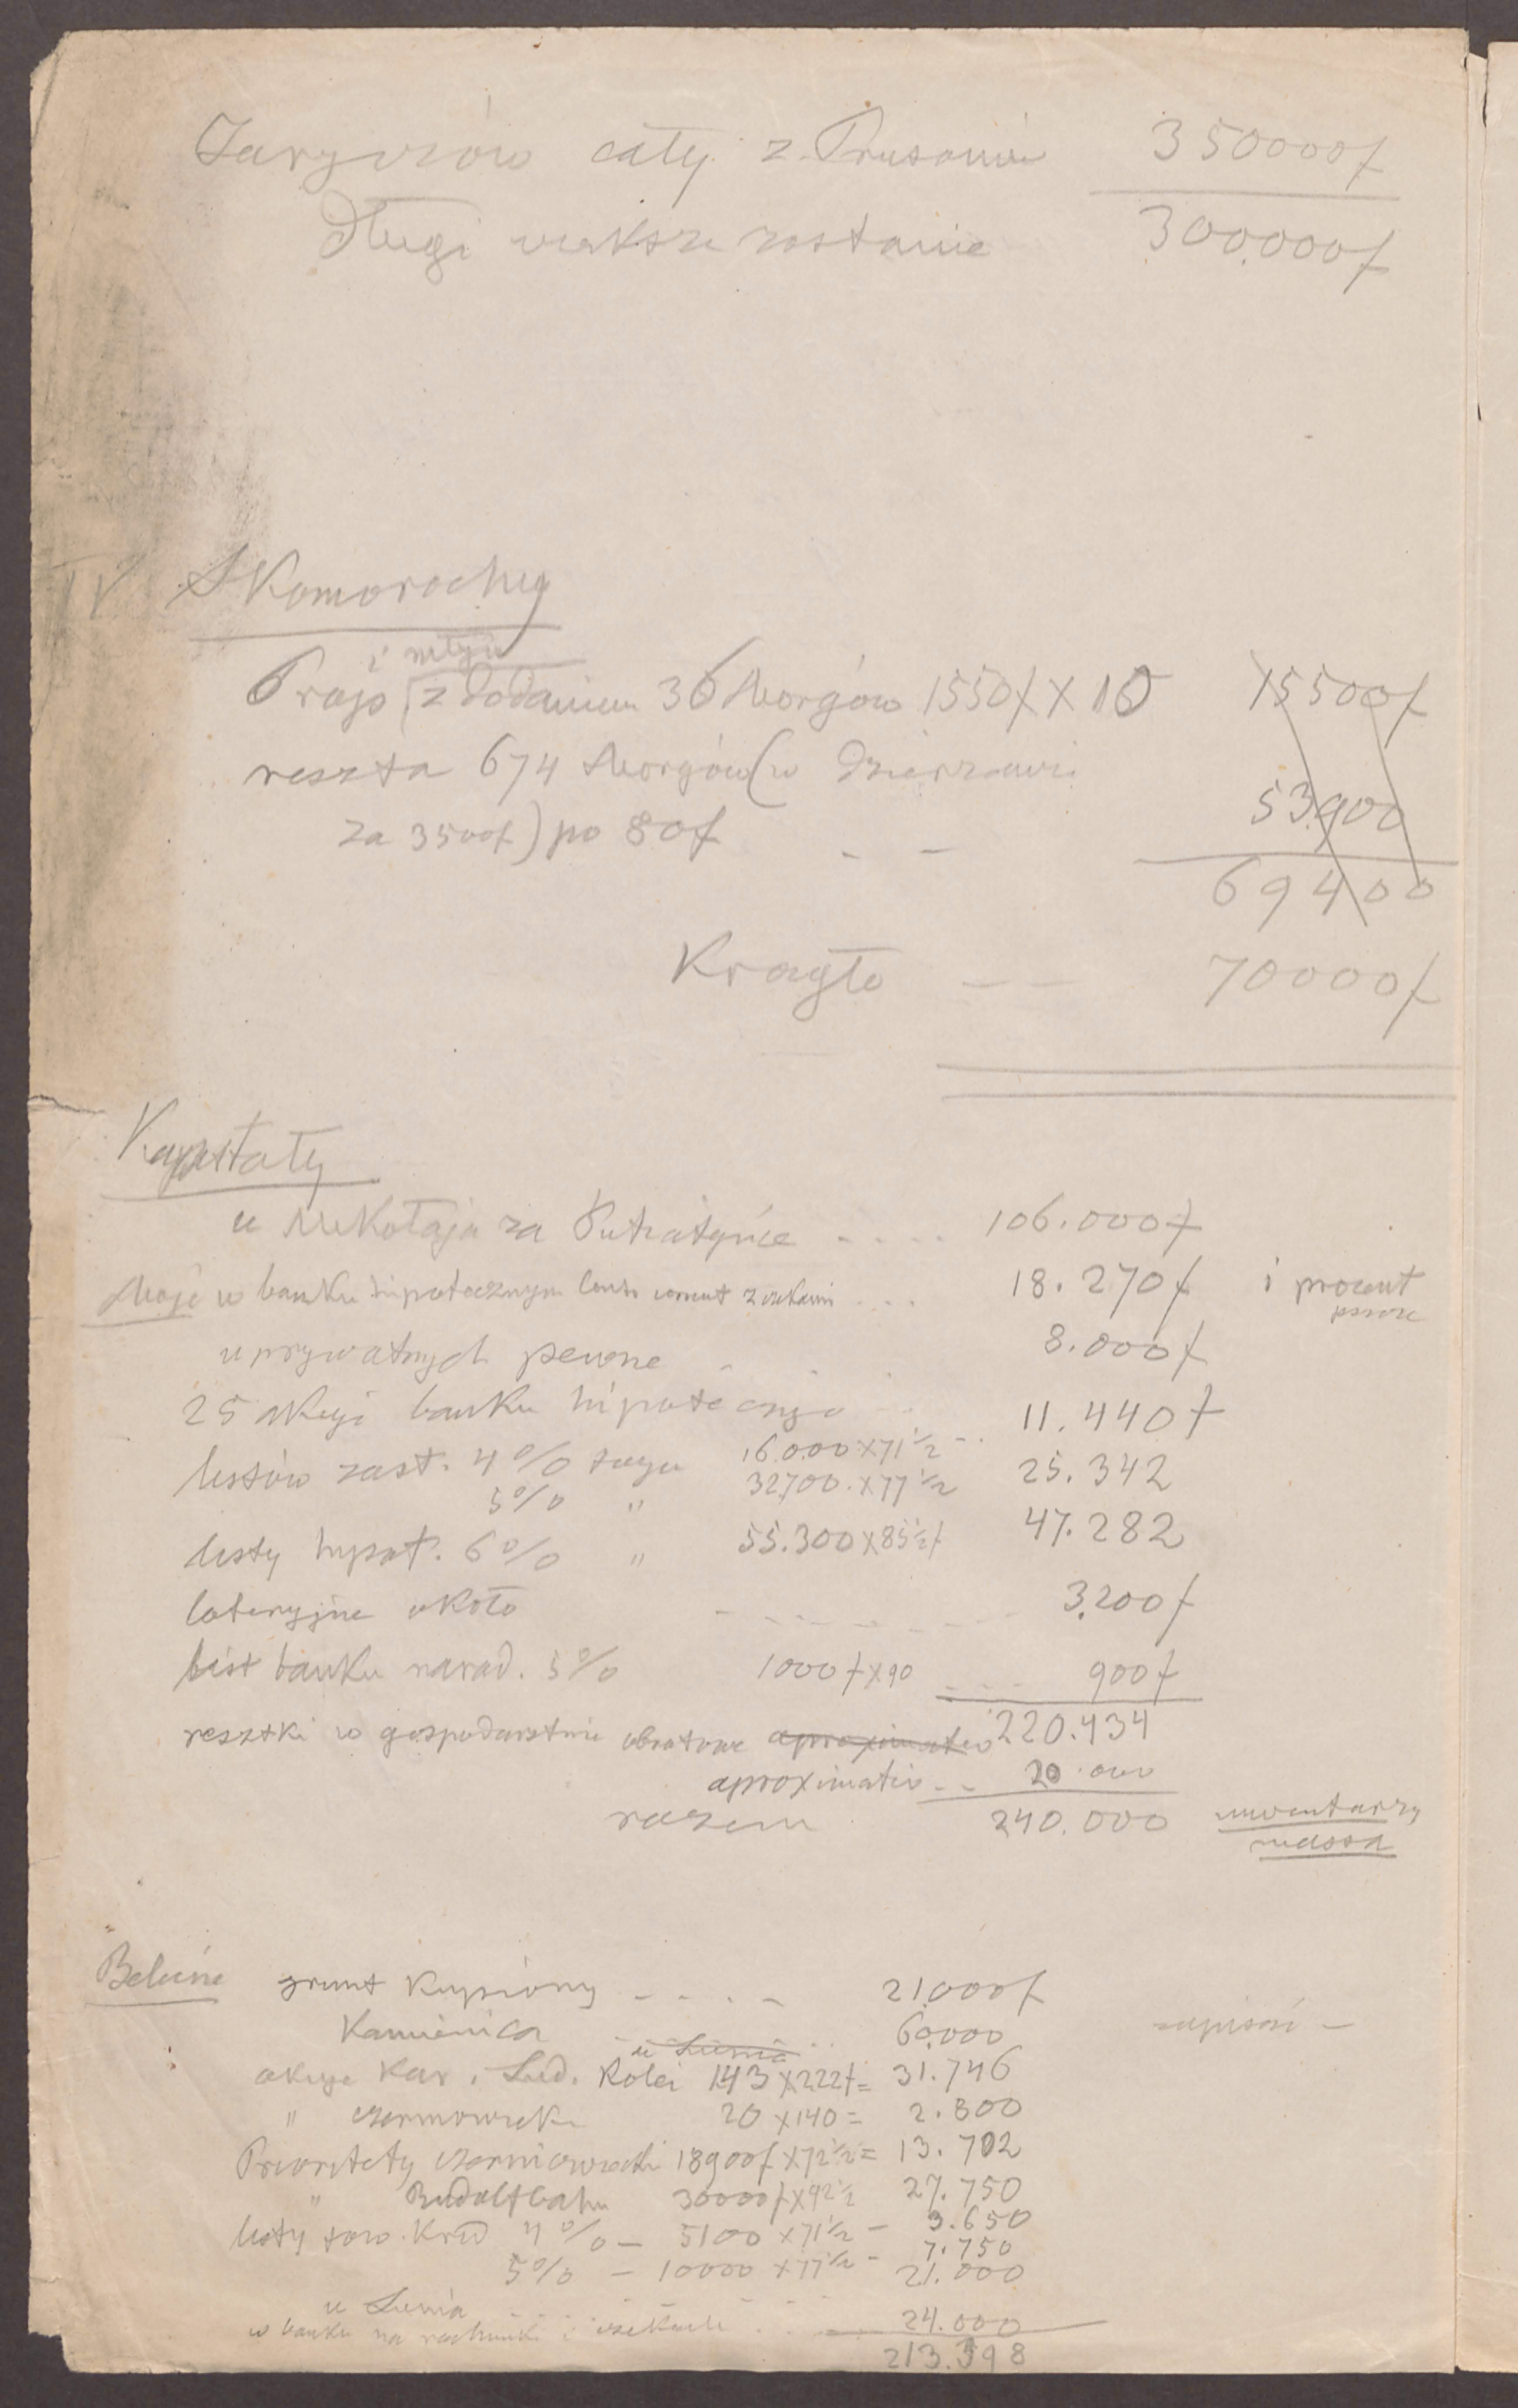 Jaryczów cały z Prusami 350000f
Długi większe zostanie 300.000f
IV Skomorochy
i młyn
Prop (z dodaniem 36 Morgów 1550f X 10 15500f
reszta 674 Morgów (w dzierzawie
za 3500f) po 80f - - 53.900
69400
Krągło - - 70000f
Kapitały
u Mikołaja za Putiatyńce .... 106.000f
Moje w banku hipotecznym conto corrent z wekslami .... 18.270f i procent
u prywatnych pewne - 8.000f
25 akcyi banku hipotecznego 11.440f
listów zast. 4% 16.000 X 71½ - ..
5% " 32700 X 77½ 25.342
listy hypot. 6% " 55.300 X 85½f 47.282
loteryjne około - - - - - 3.200f
list banku narod. 5% 1000f X 90 ... 900f
resztki w gospodarstwie obrotowe aproximative 220.434
aproximative - - 20.000
razem 240.000 inwentarzy
massa
Belzine grunt kupiony - - - - 21.000f
Kamienica 60.000
u Lunia
akcye Kar. Lud. Kolei 143 X 222f = 31.746
" czerniowieckie 20 X 140 = 2.800
Prioritety czerniowieckie 18900f X 72½ = 13.702
" Rudolfbahn 30000f X 92½ 27.750
listy tow. Kred 4% - 5100 X 71½ - 3.650
5% - 10000 X 77½ - 7.750
u Lunia 21.000
w banku na rachunki i weksle ... 24.000
213.398